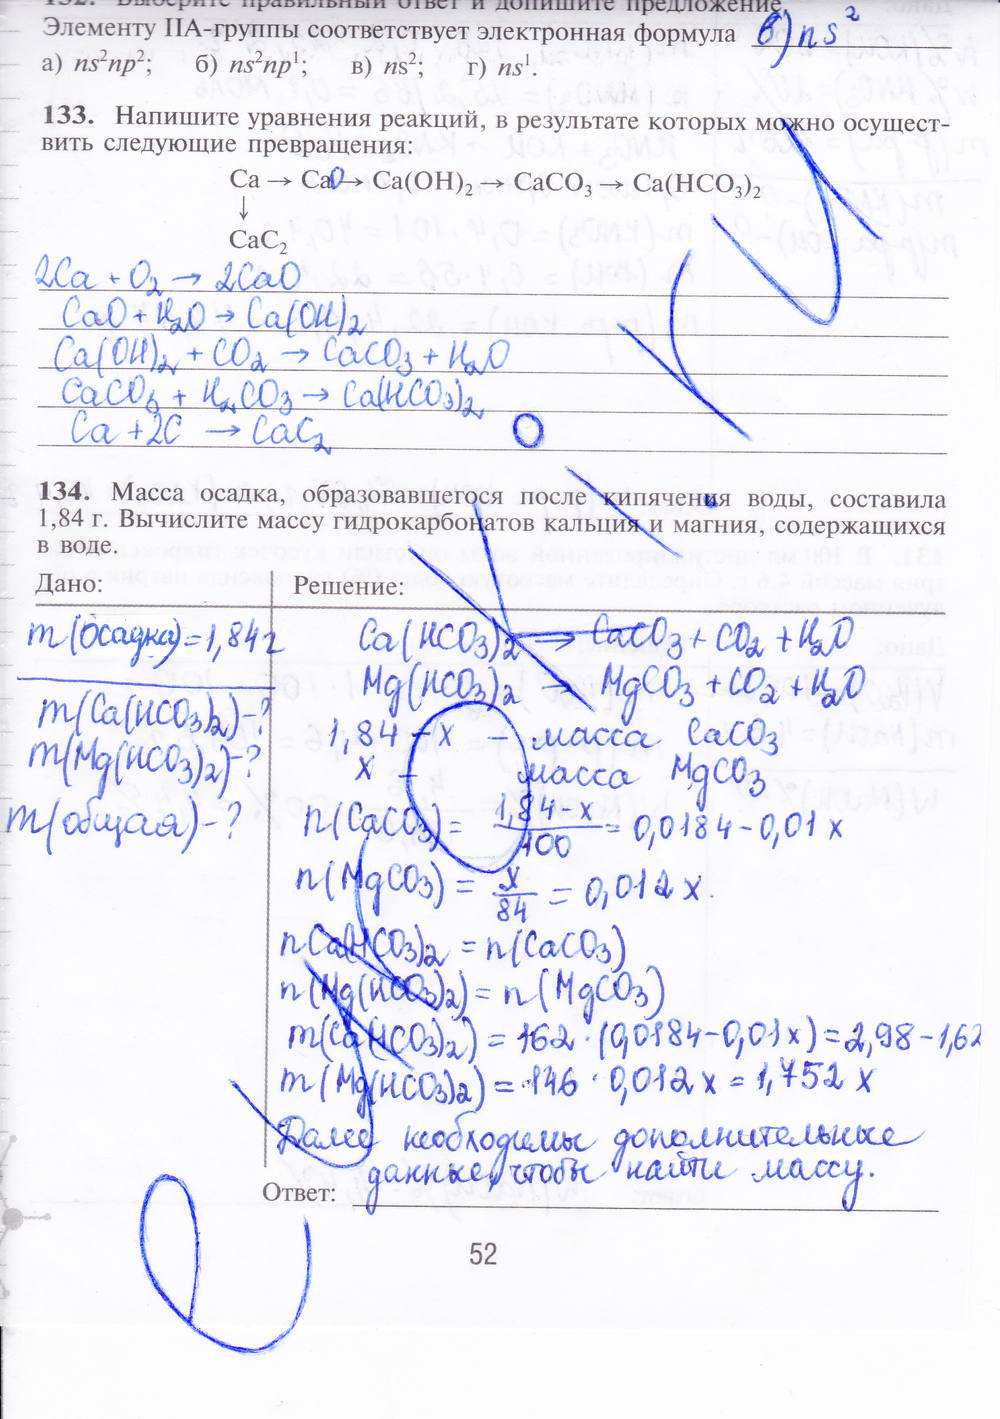 132. Выберите правильный ответ и допишите предложение.
Элементу IIA-группы соответствует электронная формула в) ns²
а) ns²np²; б) ns²np¹; в) ns²; г) ns¹.
133. Напишите уравнения реакций, в результате которых можно осущест-
вить следующие превращения:
Ca → CaO → Ca(OH)₂ → CaCO₃ → Ca(HCO₃)₂
↓
CaC₂
2Ca + O₂ → 2CaO
CaO + H₂O → Ca(OH)₂
Ca(OH)₂ + CO₂ → CaCO₃ + H₂O
CaCO₃ + H₂CO₃ → Ca(HCO₃)₂
Ca + 2C → CaC₂
134. Масса осадка, образовавшегося после кипячения воды, составила
1,84 г. Вычислите массу гидрокарбонатов кальция и магния, содержащихся
в воде.
Дано:
m(осадка)=1,84г
m(Ca(HCO₃)₂)-?
m(Mg(HCO₃)₂)-?
m(общая)-?
Решение:
Ca(HCO₃)₂ → CaCO₃ + CO₂ + H₂O
Mg(HCO₃)₂ → MgCO₃ + CO₂ + H₂O
1,84 - x - масса CaCO₃
x - масса MgCO₃
n(CaCO₃) = (1,84 - x)/100 = 0,0184 - 0,01x
n(MgCO₃) = x/84 = 0,012x.
nCa(HCO₃)₂ = n(CaCO₃)
n(Mg(HCO₃)₂) = n(MgCO₃)
m(Ca(HCO₃)₂) = 162 · (0,0184 - 0,01x) = 2,98 - 1,62
m(Mg(HCO₃)₂) = 146 · 0,012x = 1,752x
Далее необходимы дополнительные
данные, чтобы найти массу.
Ответ:
52